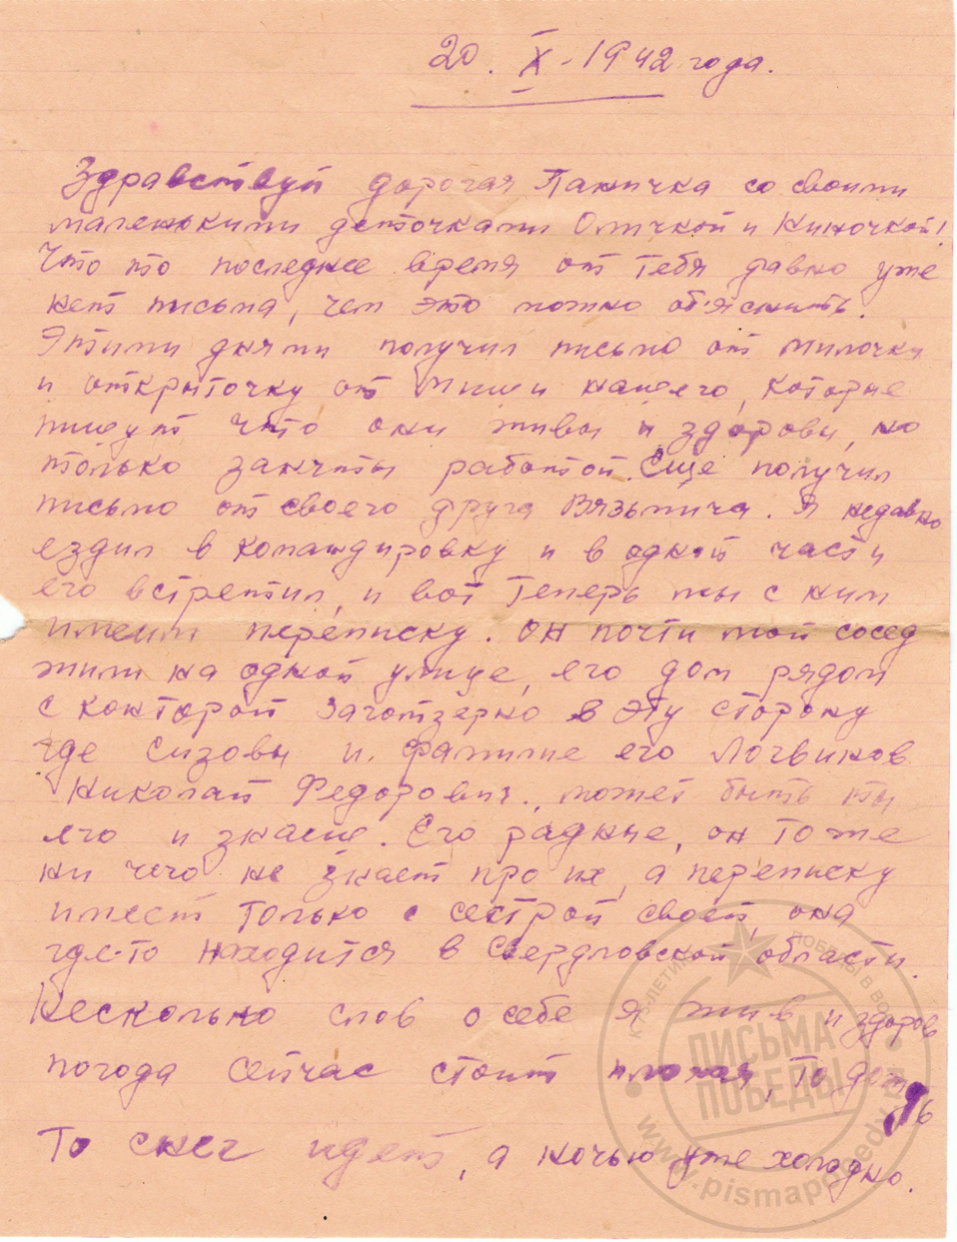 20. X - 1942 года.
Здравствуй дорогая Паничка со своими
маленькими деточками Оличкой и Ниночкой!
Что то последнее время от тебя давно уже
нет письма, чем это можно об'яснить.
Этими днями получил письмо от милочки
и открыточку от Миши нашего, которые
пишут что они живы и здоровы, но
только заняты работой. Еще получил
письмо от своего друга Вязьмича. Я недавно
ездил в командировку и в одной части
его встретил, и вот теперь мы с ним
имеим переписку. Он почти мой сосед
жили на одной улице, его дом рядом
с конторой Заготзерно в эту сторону
где Сизовы и фамилие его Логвинов
Николай Федорович., может быть ты
его и знаеш. Его радные, он тоже
ни чего не знает про их, а переписку
имеет только с сестрой своей, она
где-то находится в Свердловской области.
Несколько слов о себе я жив и здоров
погода сейчас стоит плохая, то дождь
то снег идет, а ночью уже холодно.
К 70-ЛЕТИЮ ПОБЕДЫ В ВОВ
ПИСЬМА
ПОБЕДЫ
www.pismapobedy.ru